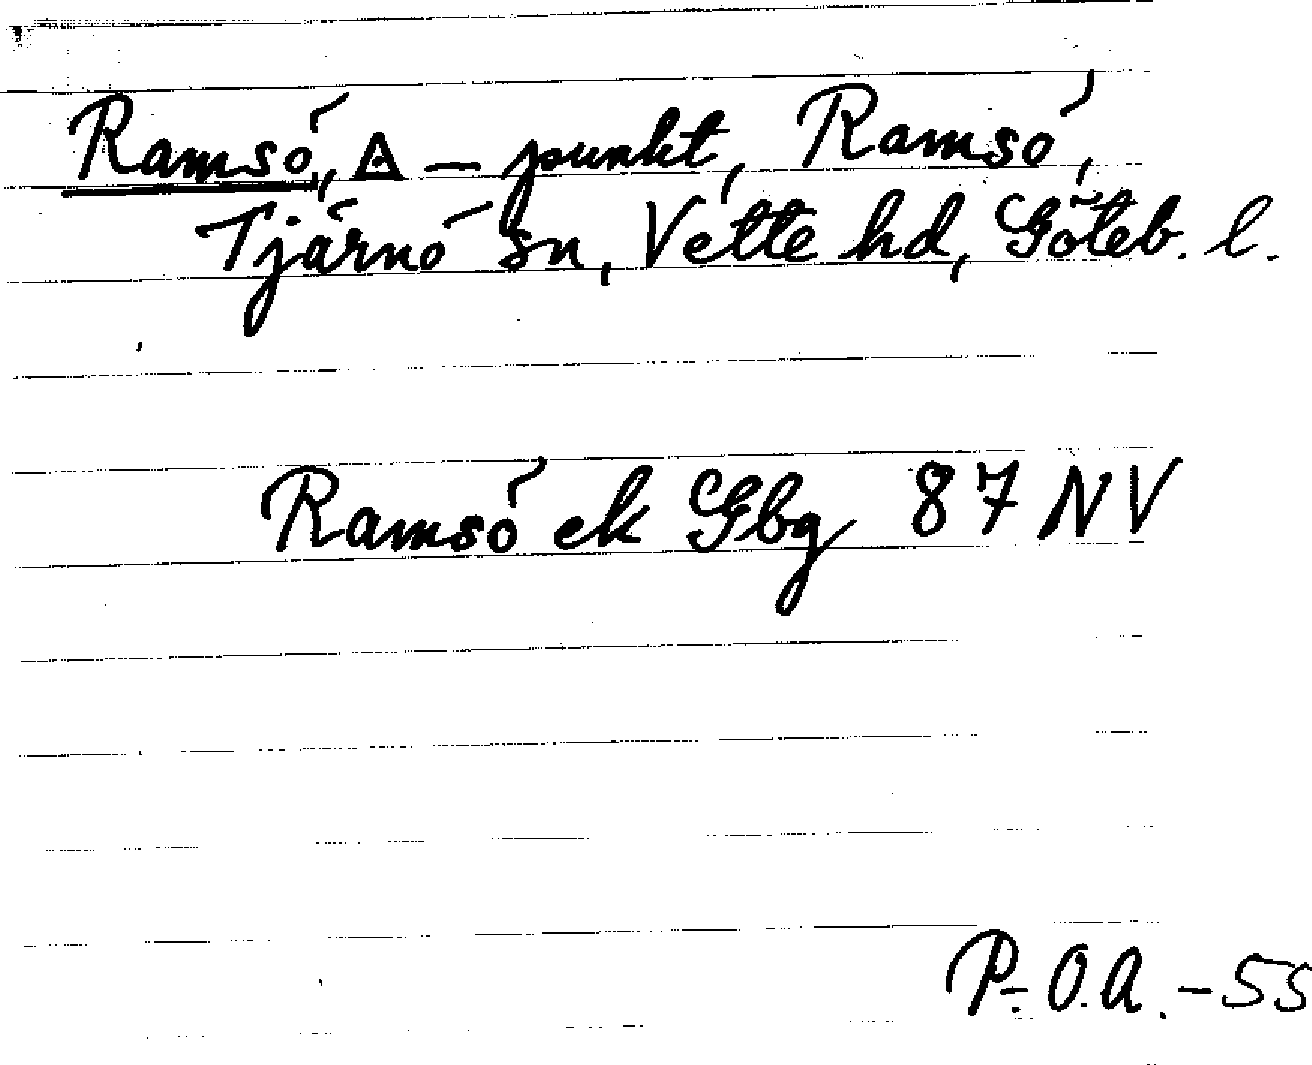 Ramsö, Δ – punkt, Ramsö,
Tjärnö sn, Vette hd, Göteb. l.
Ramsö ek Gbg 87 NV
P.-O.A. -55